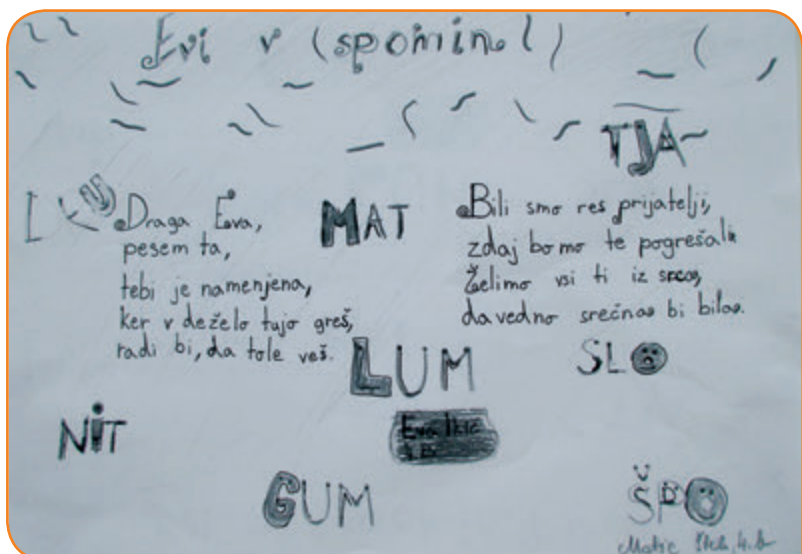 Evi v (spomin!)
TJA~
IKU
Draga Eva,
pesem ta,
tebi je namenjena,
ker v deželo tujo greš,
radi bi, da tole veš.
MAT
Bili smo res prijatelji,
zdaj bomo te pogrešali.
Želimo vsi ti iz srca,
da vedno srečna bi bila.
LUM
SLO
NIT
Eva
4.B
GUM
ŠPO
Matic 4.b